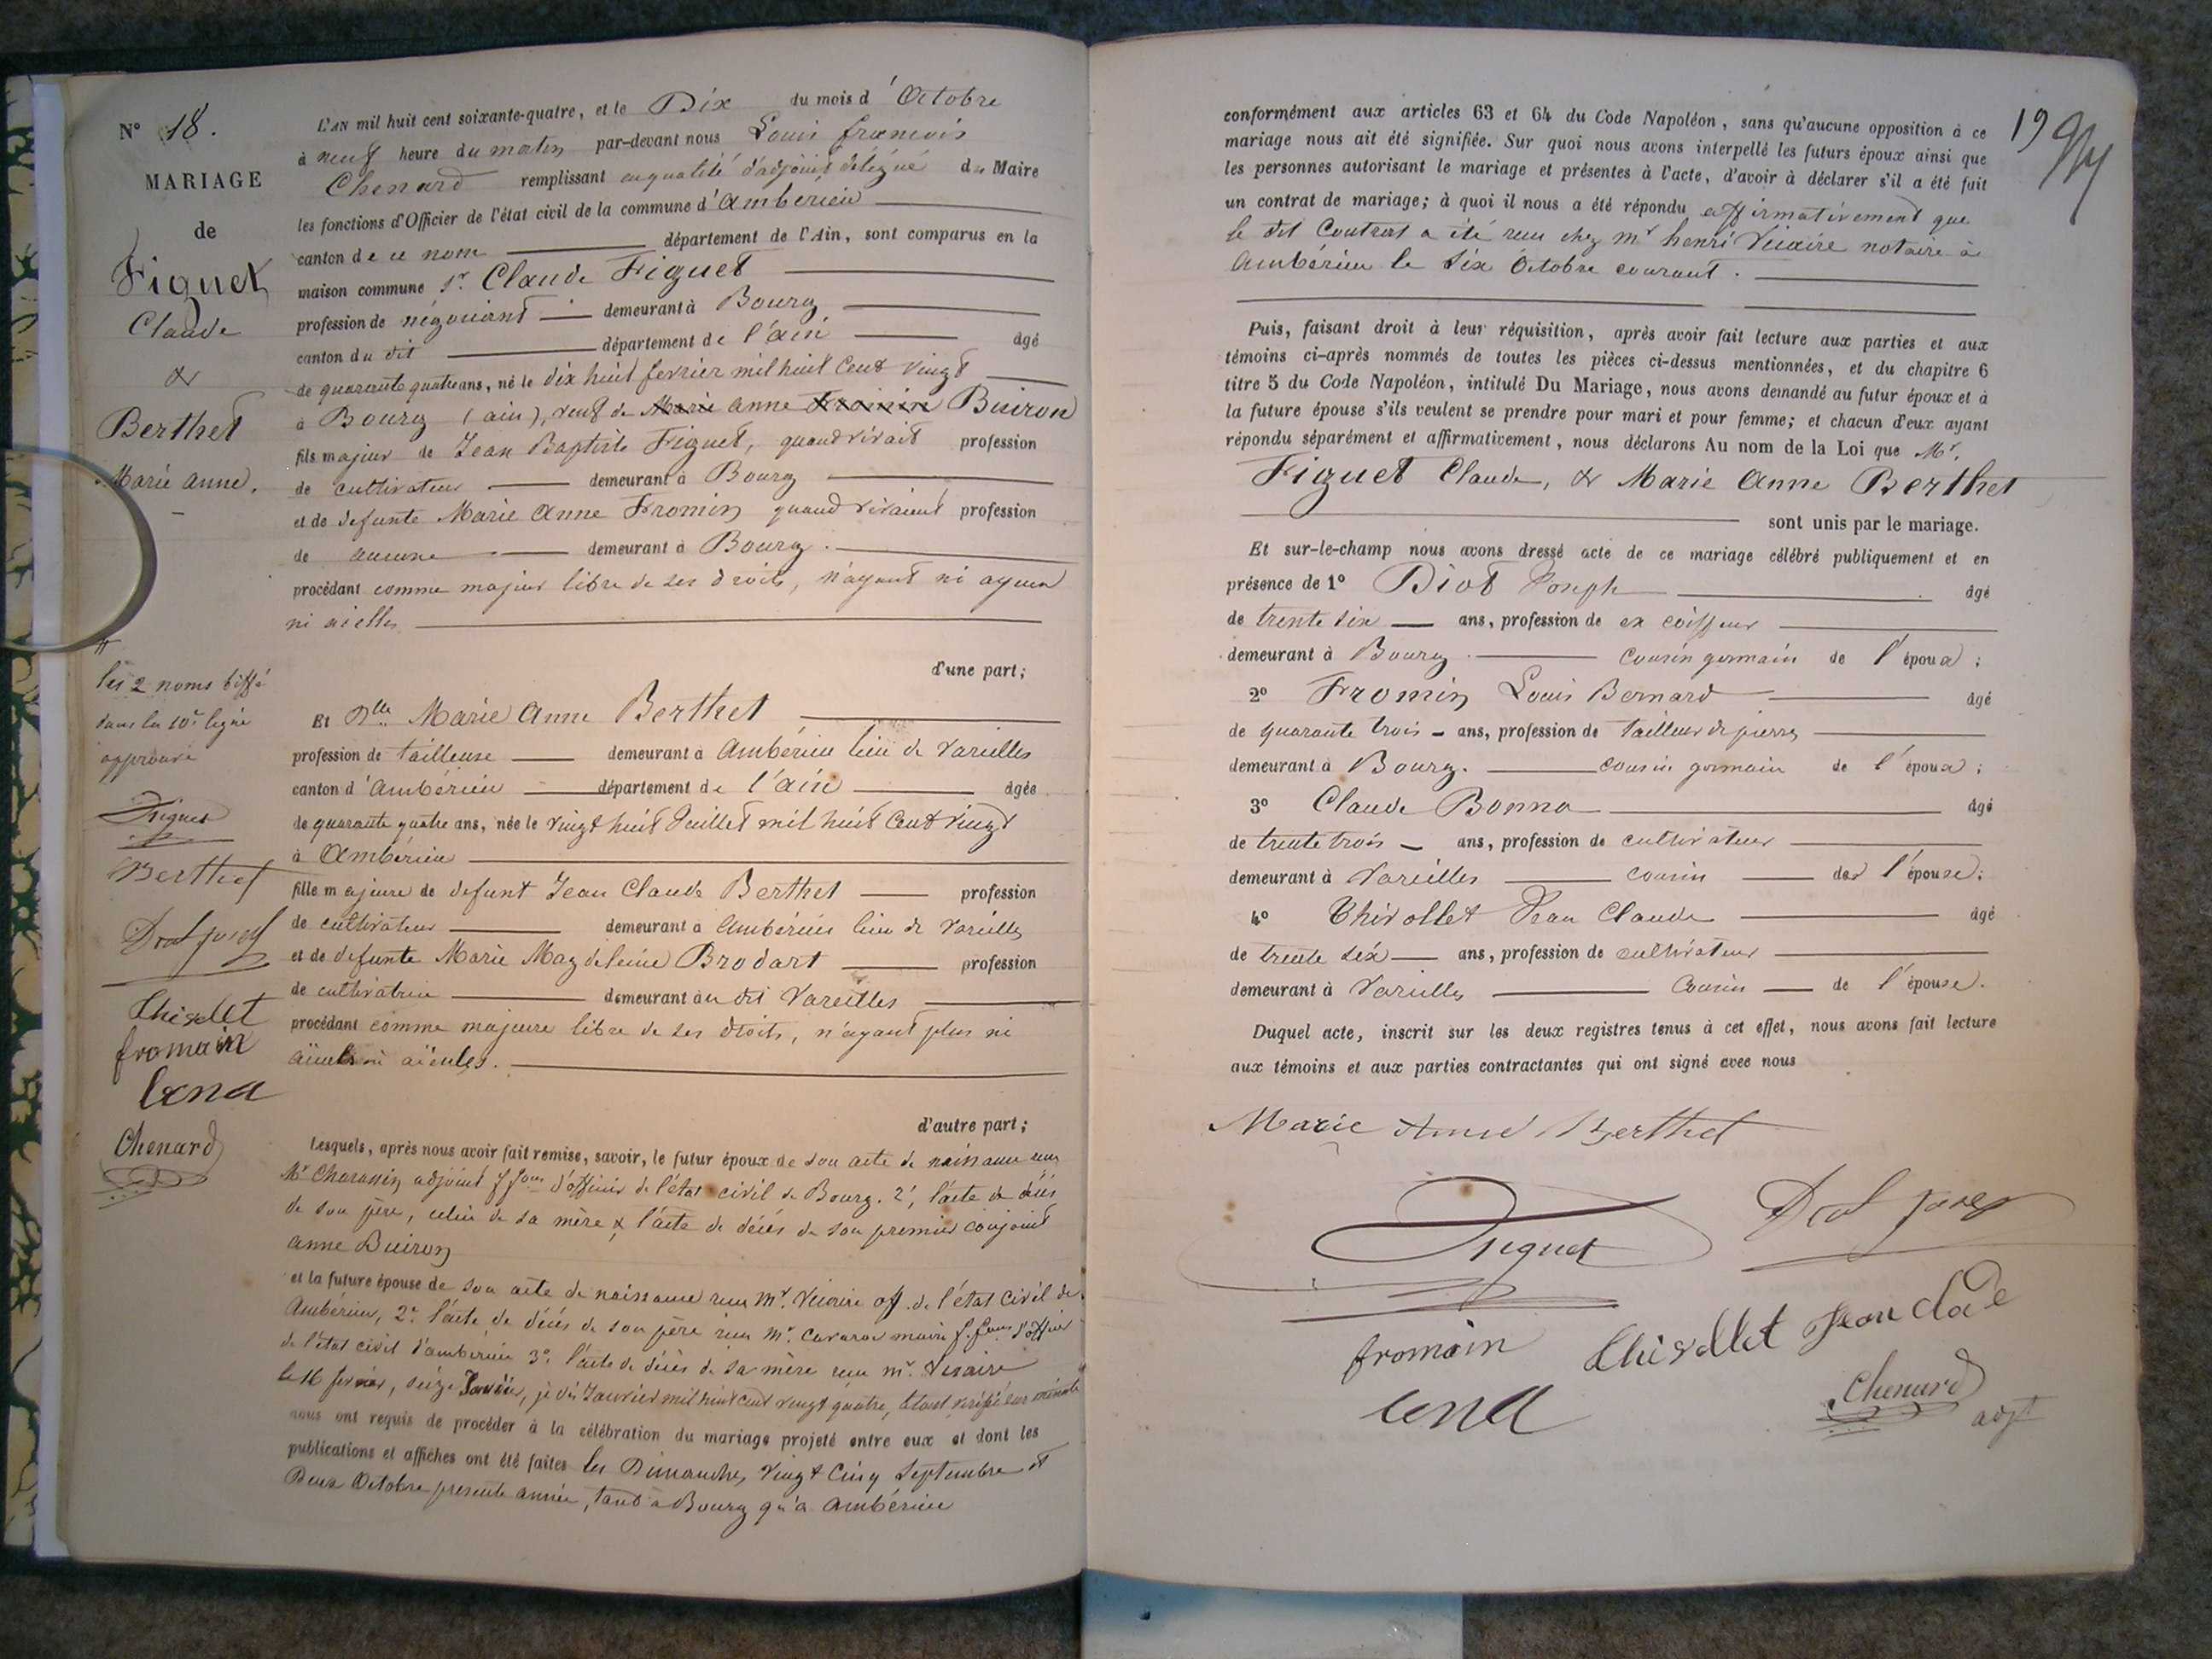 N° 18.
MARIAGE
de
Figuet
Claude
&
Berthet
Marie Anne.
les 2 noms biffé
dans la 10e ligne
approuvé
Figuet
Berthet
Thirollet
fromain
Chenard
L'AN mil huit cent soixante-quatre, et le Dix du mois d'Octobre
à neuf heure du matin par-devant nous Louis françois
Chenard remplissant en qualité d'adjoint délégué du Maire
les fonctions d'Officier de l'état civil de la commune d'Ambérieu
canton de ce nom département de l'Ain, sont comparus en la
maison commune Sr. Claude Figuet
profession de négociant demeurant à Bourg
canton du dit département de l'ain âgé
de quarante quatre ans, né le dix huit fevrier mil huit Cent vingt
à Bourg (ain), veuf de Marie anne Fromin Buiron
fils majeur de Jean Baptiste Figuet, quand vivait profession
de cultivateur demeurant à Bourg
et de defunte Marie Anne Fromin quand vivaient profession
de aucune demeurant à Bourg.
procédant comme majeur libre de ses droits, n'ayant ni ayeux
ni aïelles
d'une part;
Et Dlle Marie Anne Berthet
profession de tailleuse demeurant à Ambérieu lieu de Vareilles
canton d'Ambérieu département de l'ain âgée
de quarante quatre ans, née le vingt huit Juillet mil huit Cent vingt
à Ambérieu
fille majeure de defunt Jean Claude Berthet profession
de cultivateur demeurant à Ambérieu lieu de Vareilles
et de defunte Marie Magdeleine Brodart profession
de cultivatrice demeurant au dit Vareilles
procédant comme majeure libre de ses droits, n'ayant plus ni
aïeuls ni aïeules.
d'autre part;
Lesquels, après nous avoir fait remise, savoir, le futur époux de son acte de naissance reçu
Mr Charassin adjoint d'officier de l'état civil de Bourg. 2°, l'acte de décès
de son père, celui de sa mère & l'acte de décès de son premier conjoint
anne Buiron
et la future épouse de son acte de naissance reçu Mr. Vicaire off. de l'état civil de
Ambérieu, 2° l'acte de décès de son père reçu Mr. maire d'officier
de l'état civil d'ambérieu 3° l'acte de décès de sa mère reçu Mr. Vicaire
le 16 fevrier, seize Janvier, je dis Janvier mil huit cent vingt quatre,
nous ont requis de procéder à la célébration du mariage projeté entre eux et dont les
publications et affiches ont été faites les Dimanches vingt Cinq Septembre et
Deux Octobre presente année, tant à Bourg qu'à Ambérieu
19
conformément aux articles 63 et 64 du Code Napoléon, sans qu'aucune opposition à ce
mariage nous ait été signifiée. Sur quoi nous avons interpellé les futurs époux ainsi que
les personnes autorisant le mariage et présentes à l'acte, d'avoir à déclarer s'il a été fait
un contrat de mariage; à quoi il nous a été répondu affirmativement que
le dit Contrat a été reçu chez Mr henri Vicaire notaire à
Ambérieu le Six Octobre courant.
Puis, faisant droit à leur réquisition, après avoir fait lecture aux parties et aux
témoins ci-après nommés de toutes les pièces ci-dessus mentionnées, et du chapitre 6
titre 5 du Code Napoléon, intitulé Du Mariage, nous avons demandé au futur époux et à
la future épouse s'ils veulent se prendre pour mari et pour femme; et chacun d'eux ayant
répondu séparément et affirmativement, nous déclarons Au nom de la Loi que Mr.
Figuet Claude, & Marie Anne Berthet
sont unis par le mariage.
Et sur-le-champ nous avons dressé acte de ce mariage célébré publiquement et en
présence de 1° Diot Joseph âgé
de trente six ans, profession de ex coiffeur
demeurant à Bourg cousin germain de l'époux;
2° Fromin Louis Bernard âgé
de quarante trois ans, profession de tailleur de pierres
demeurant à Bourg. cousin germain de l'époux;
3° Claude Bonna âgé
de trente trois ans, profession de cultivateur
demeurant à Vareilles cousin de l'épouse;
4° Thirollet Jean Claude âgé
de trente six ans, profession de cultivateur
demeurant à Vareilles Cousin de l'épouse.
Duquel acte, inscrit sur les deux registres tenus à cet effet, nous avons fait lecture
aux témoins et aux parties contractantes qui ont signé avec nous
Marie Anne Berthet
Figuet
fromain Thirollet Jean Clade
Chenard
adjt